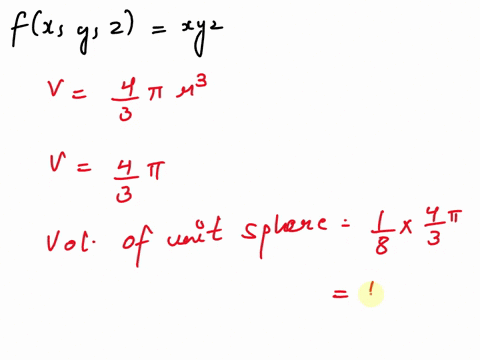 f(x, y, z) = xyz
V = 4/3 π r³
V = 4/3 π
Vol. of unit sphere = 1/8 × 4/3 π
=